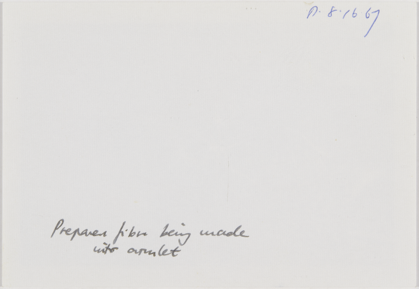 A·8·1667
Prepared fibre being made
into armlet